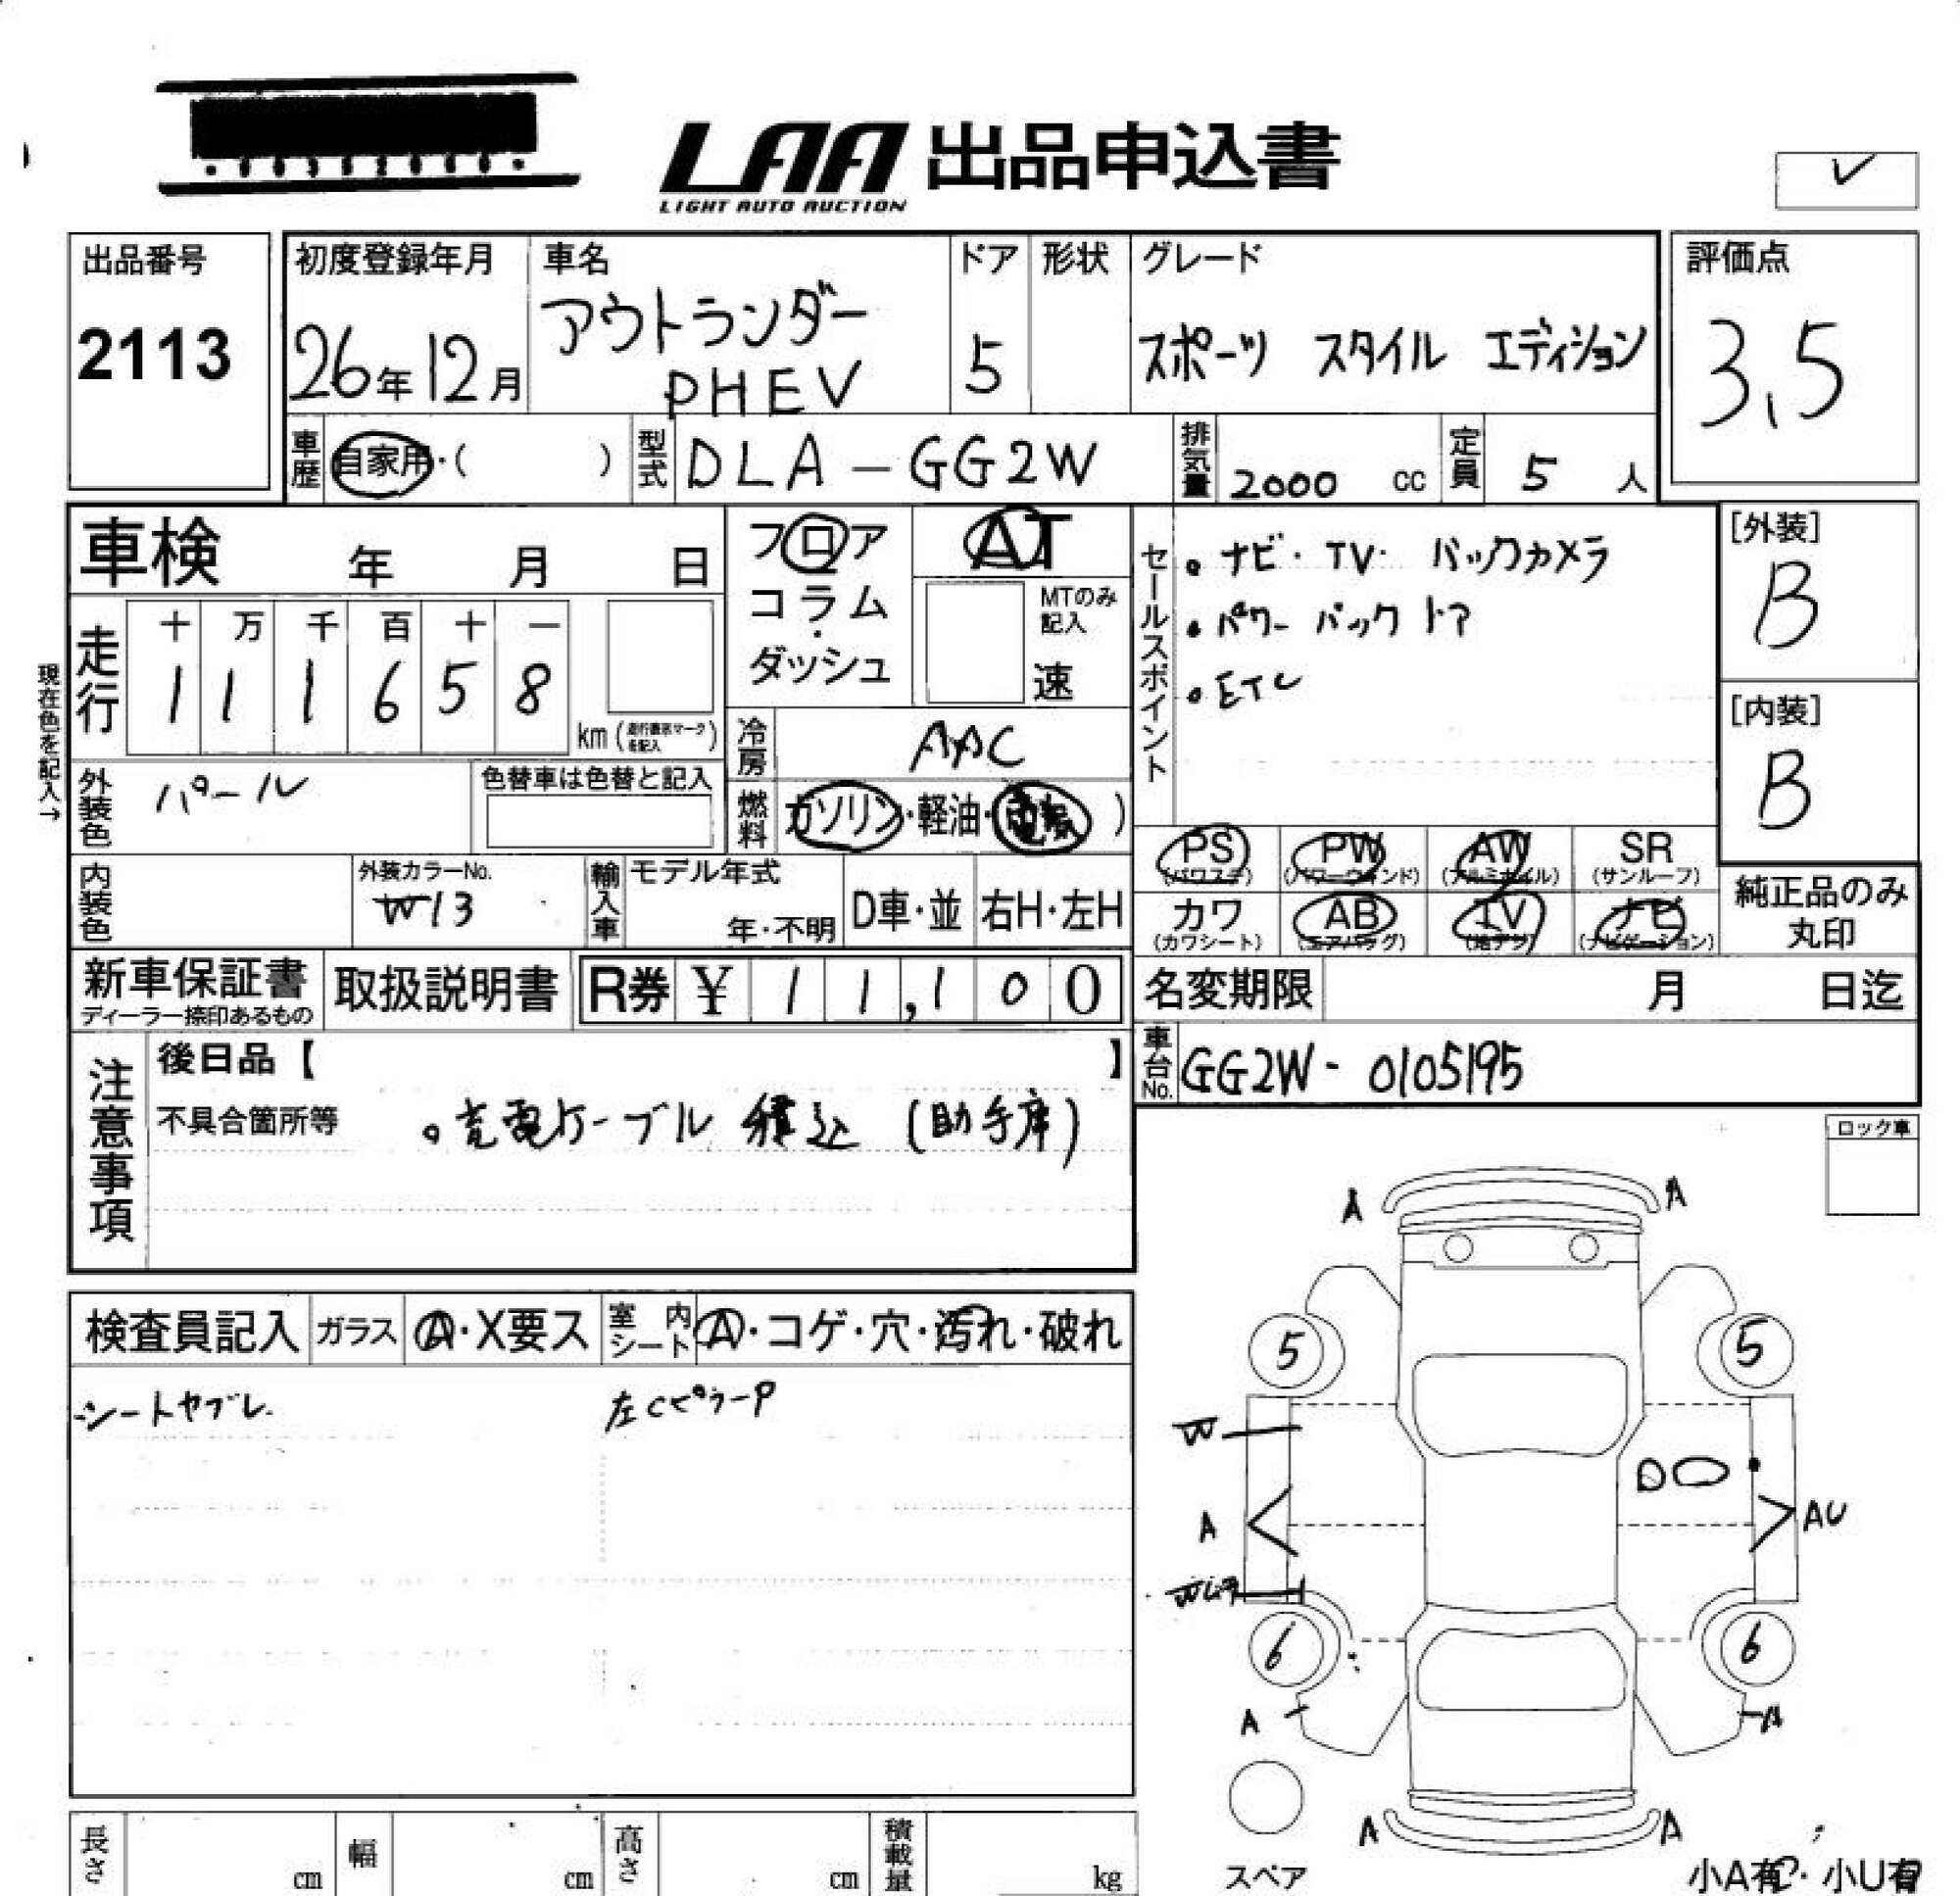 LAA 出品申込書
LIGHT AUTO AUCTION
出品番号
2113
初度登録年月
26年12月
車名
アウトランダー
PHEV
ドア
5
形状
グレード
スポーツ スタイル エディション
評価点
3.5
車歴
自家用・( )
型式
DLA-GG2W
排気量
2000 cc
定員
5 人
車検 年 月 日
フロア
コラム
・
ダッシュ
AT
MTのみ
記入
速
セールスポイント
・ナビ・TV・バックカメラ
・パワーバックドア
・ETC
[外装]
B
[内装]
B
現在色を記入→
走行
十 万 千 百 十 一
1 1 1 6 5 8
km
冷房
AAC
燃料
ガソリン・軽油・ )
外装色
パール
色替車は色替と記入
内装色
外装カラーNo.
W13
輸入車
モデル年式
年・不明
D車・並
右H・左H
PS
(パワステ)
PW
(パワーウィンド)
AW
(アルミホイル)
SR
(サンルーフ)
カワ
(カワシート)
AB
(エアバッグ)
TV
(地デジ)
ナビ
(ナビゲーション)
純正品のみ
丸印
新車保証書
ディーラー捺印あるもの
取扱説明書
R券 ¥ 1 1,1 0 0
名変期限 月 日迄
車台No.
GG2W-0105195
注意事項
後日品【 】
不具合箇所等
・充電ケーブル 積込 (助手席)
ロック車
検査員記入
ガラス
A・X要ス
室内シート
A・コゲ・穴・汚れ・破れ
シートヤブレ
左CピラーP
A A
5 5
W
A
AU
6 6
A A
A A
スペア
小A有・小U有
長さ cm
幅 cm
高さ cm
積載量 kg